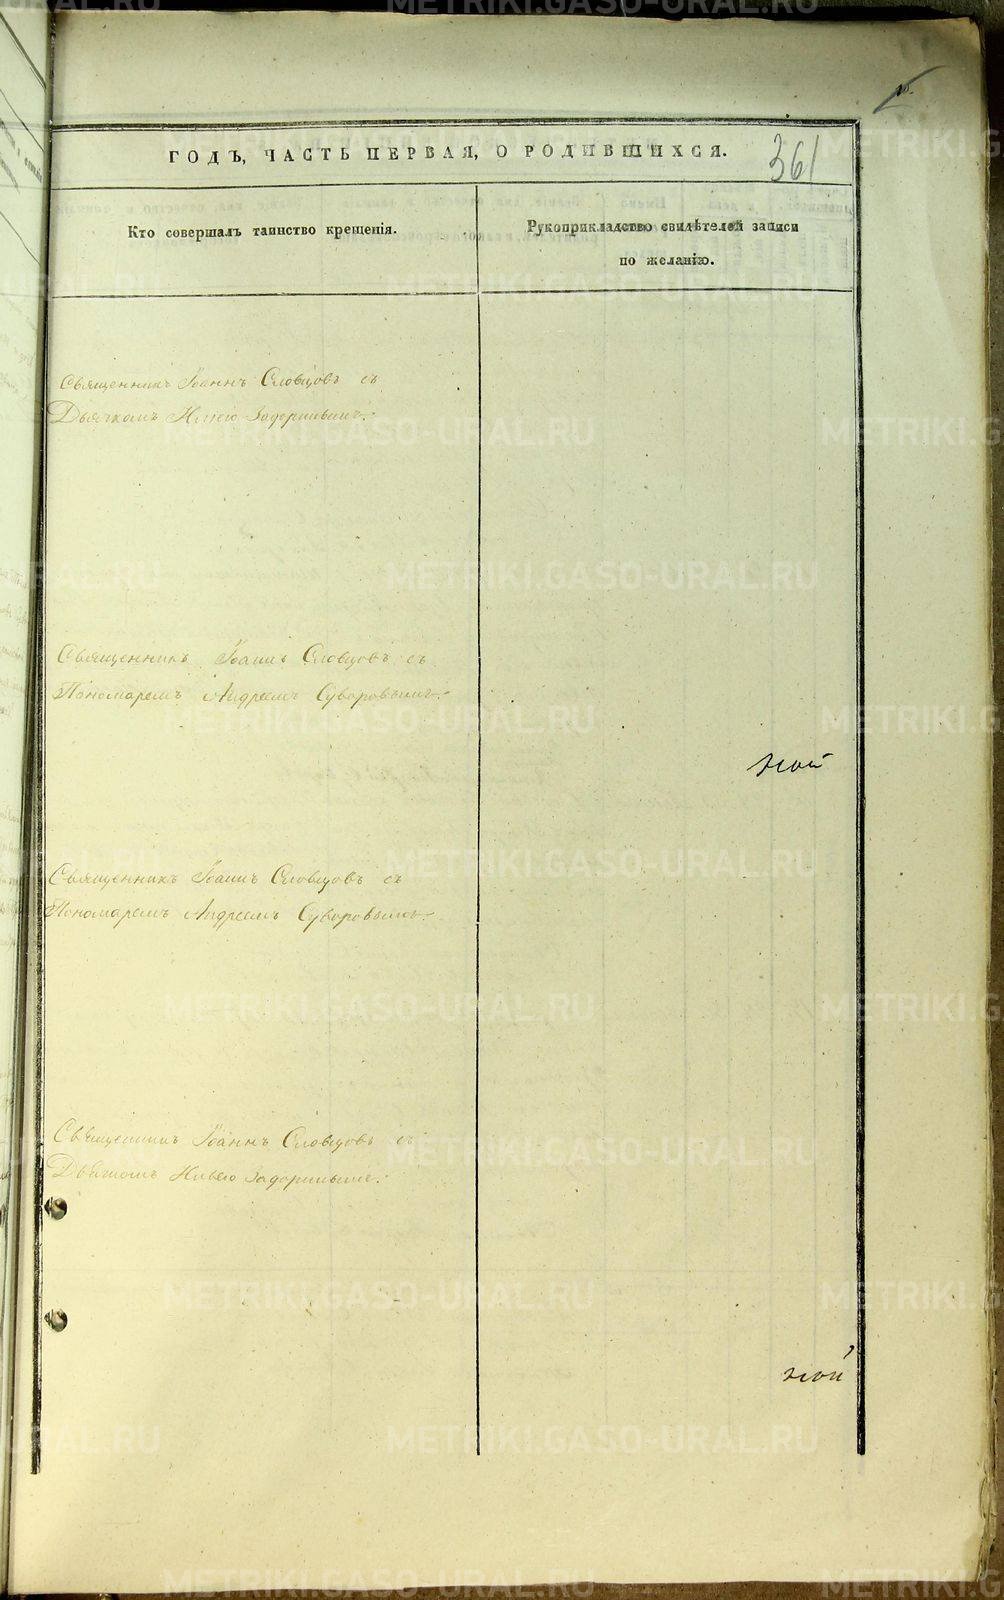 361
ГОДЪ, ЧАСТЬ ПЕРВАЯ, О РОДИВШИХСЯ.
Кто совершалъ таинство крещенія.
Рукоприкладство свидѣтелей записи
по желанію.
Священникъ Іоаннъ Словцовъ съ
Дьячкомъ Ильею Задоринымъ.
Священникъ Іоаннъ Словцовъ съ
Пономаремъ Андреемъ Суворовымъ.
ной
Священникъ Іоаннъ Словцовъ съ
Пономаремъ Андреемъ Суворовымъ.
Священникъ Іоаннъ Словцовъ съ
Дьячкомъ Ильею Задоринымъ.
ной
METRIKI.GASO-URAL.RU